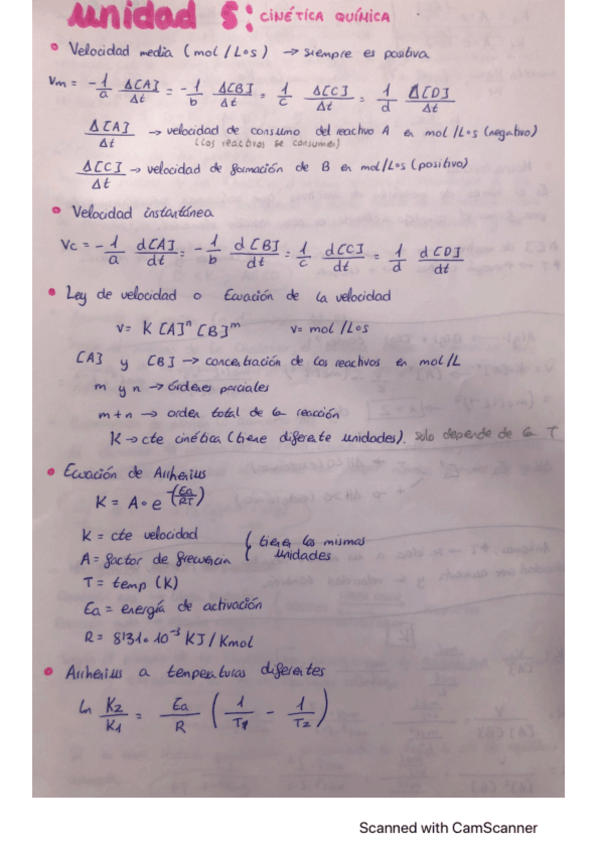 Unidad 5: CINÉTICA QUÍMICA
• Velocidad media (mol/L·s) → siempre es positiva
Vm = -1/a Δ[A]/Δt = -1/b Δ[B]/Δt = 1/c Δ[C]/Δt = 1/d Δ[D]/Δt
Δ[A]/Δt → velocidad de consumo del reactivo A en mol/L·s (negativo)
(los reactivos se consumen)
Δ[C]/Δt → velocidad de formación de B en mol/L·s (positivo)
• Velocidad instantánea
Vc = -1/a d[A]/dt = -1/b d[B]/dt = 1/c d[C]/dt = 1/d d[D]/dt
• Ley de velocidad o Ecuación de la velocidad
v = K [A]ⁿ [B]ᵐ v = mol/L·s
[A] y [B] → concentración de los reactivos en mol/L
m y n → órdenes parciales
m+n → orden total de la reacción
K → cte cinética (tiene diferente unidades). solo depende de la T
• Ecuación de Arrhenius
K = A · e^-(Ea/RT)
K = cte velocidad
A = factor de frecuencia
( tienen las mismas
unidades
T = temp (K)
Ea = energía de activación
R = 8'31·10⁻³ KJ/Kmol
• Arrhenius a temperaturas diferentes
ln K2/K1 = Ea/R (1/T1 - 1/T2)
Scanned with CamScanner